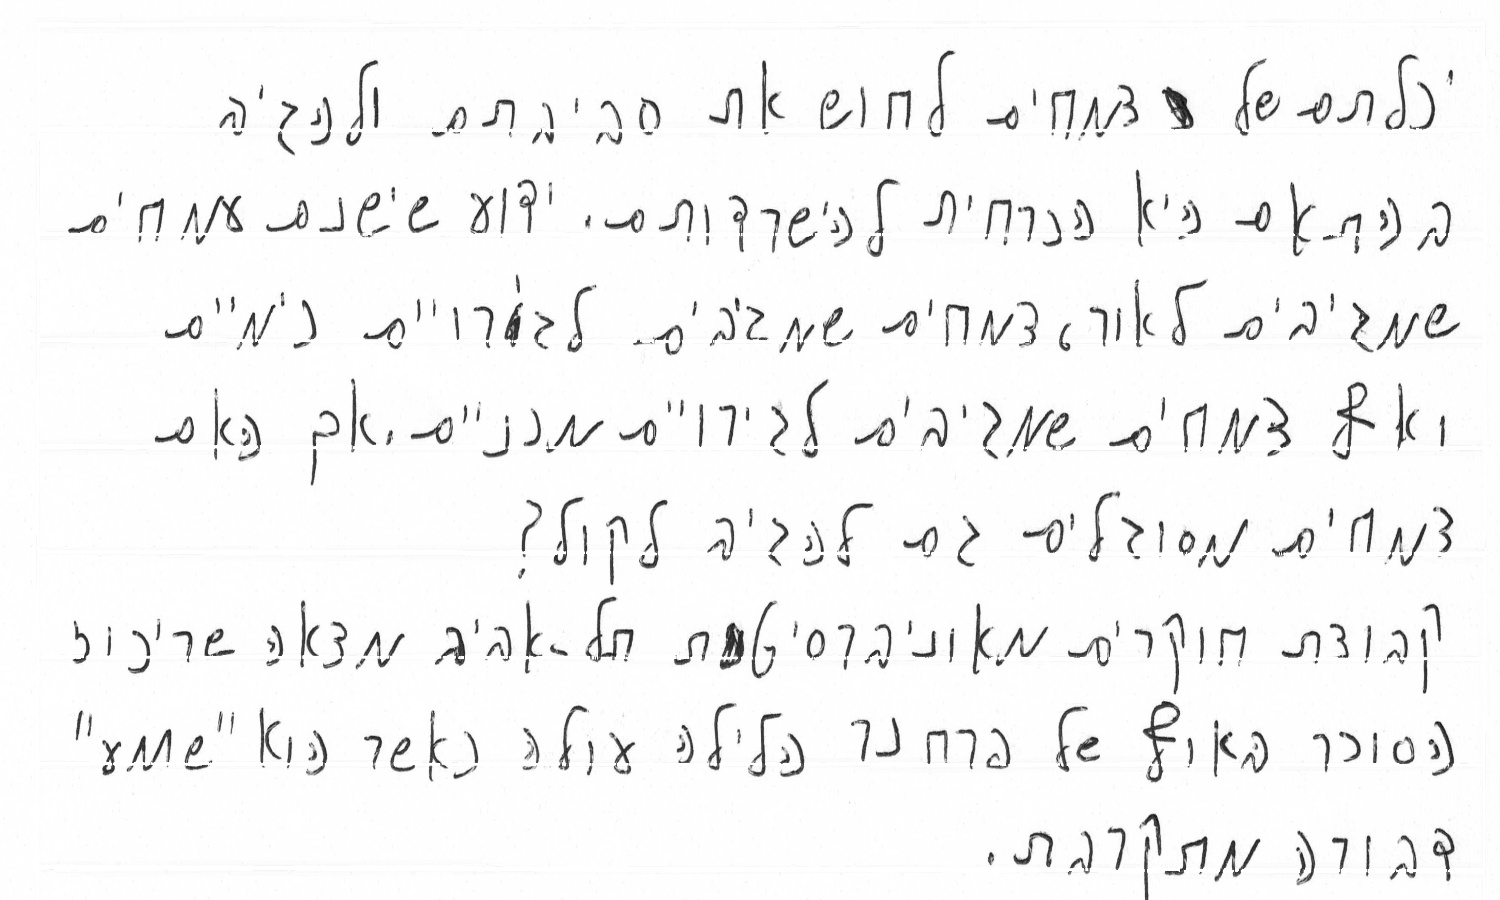 יכלתם של צמחים לחוש את סביבתם ולהגיב
בהתאם היא הכרחית להישרדותם. ידוע שישנם צמחים
שמגיבים לאור, צמחים שמגיבים לגירויים כימיים
ואף צמחים שמגיבים לגירויים מכניים. אך האם
צמחים מסוגלים גם להגיב לקול?
קבוצת חוקרים מאוניברסיטת תל-אביב מצאה שריכוז
הסוכר בצוף של פרח נר הלילה עולה כאשר הוא "שומע"
דבורה מתקרבת.